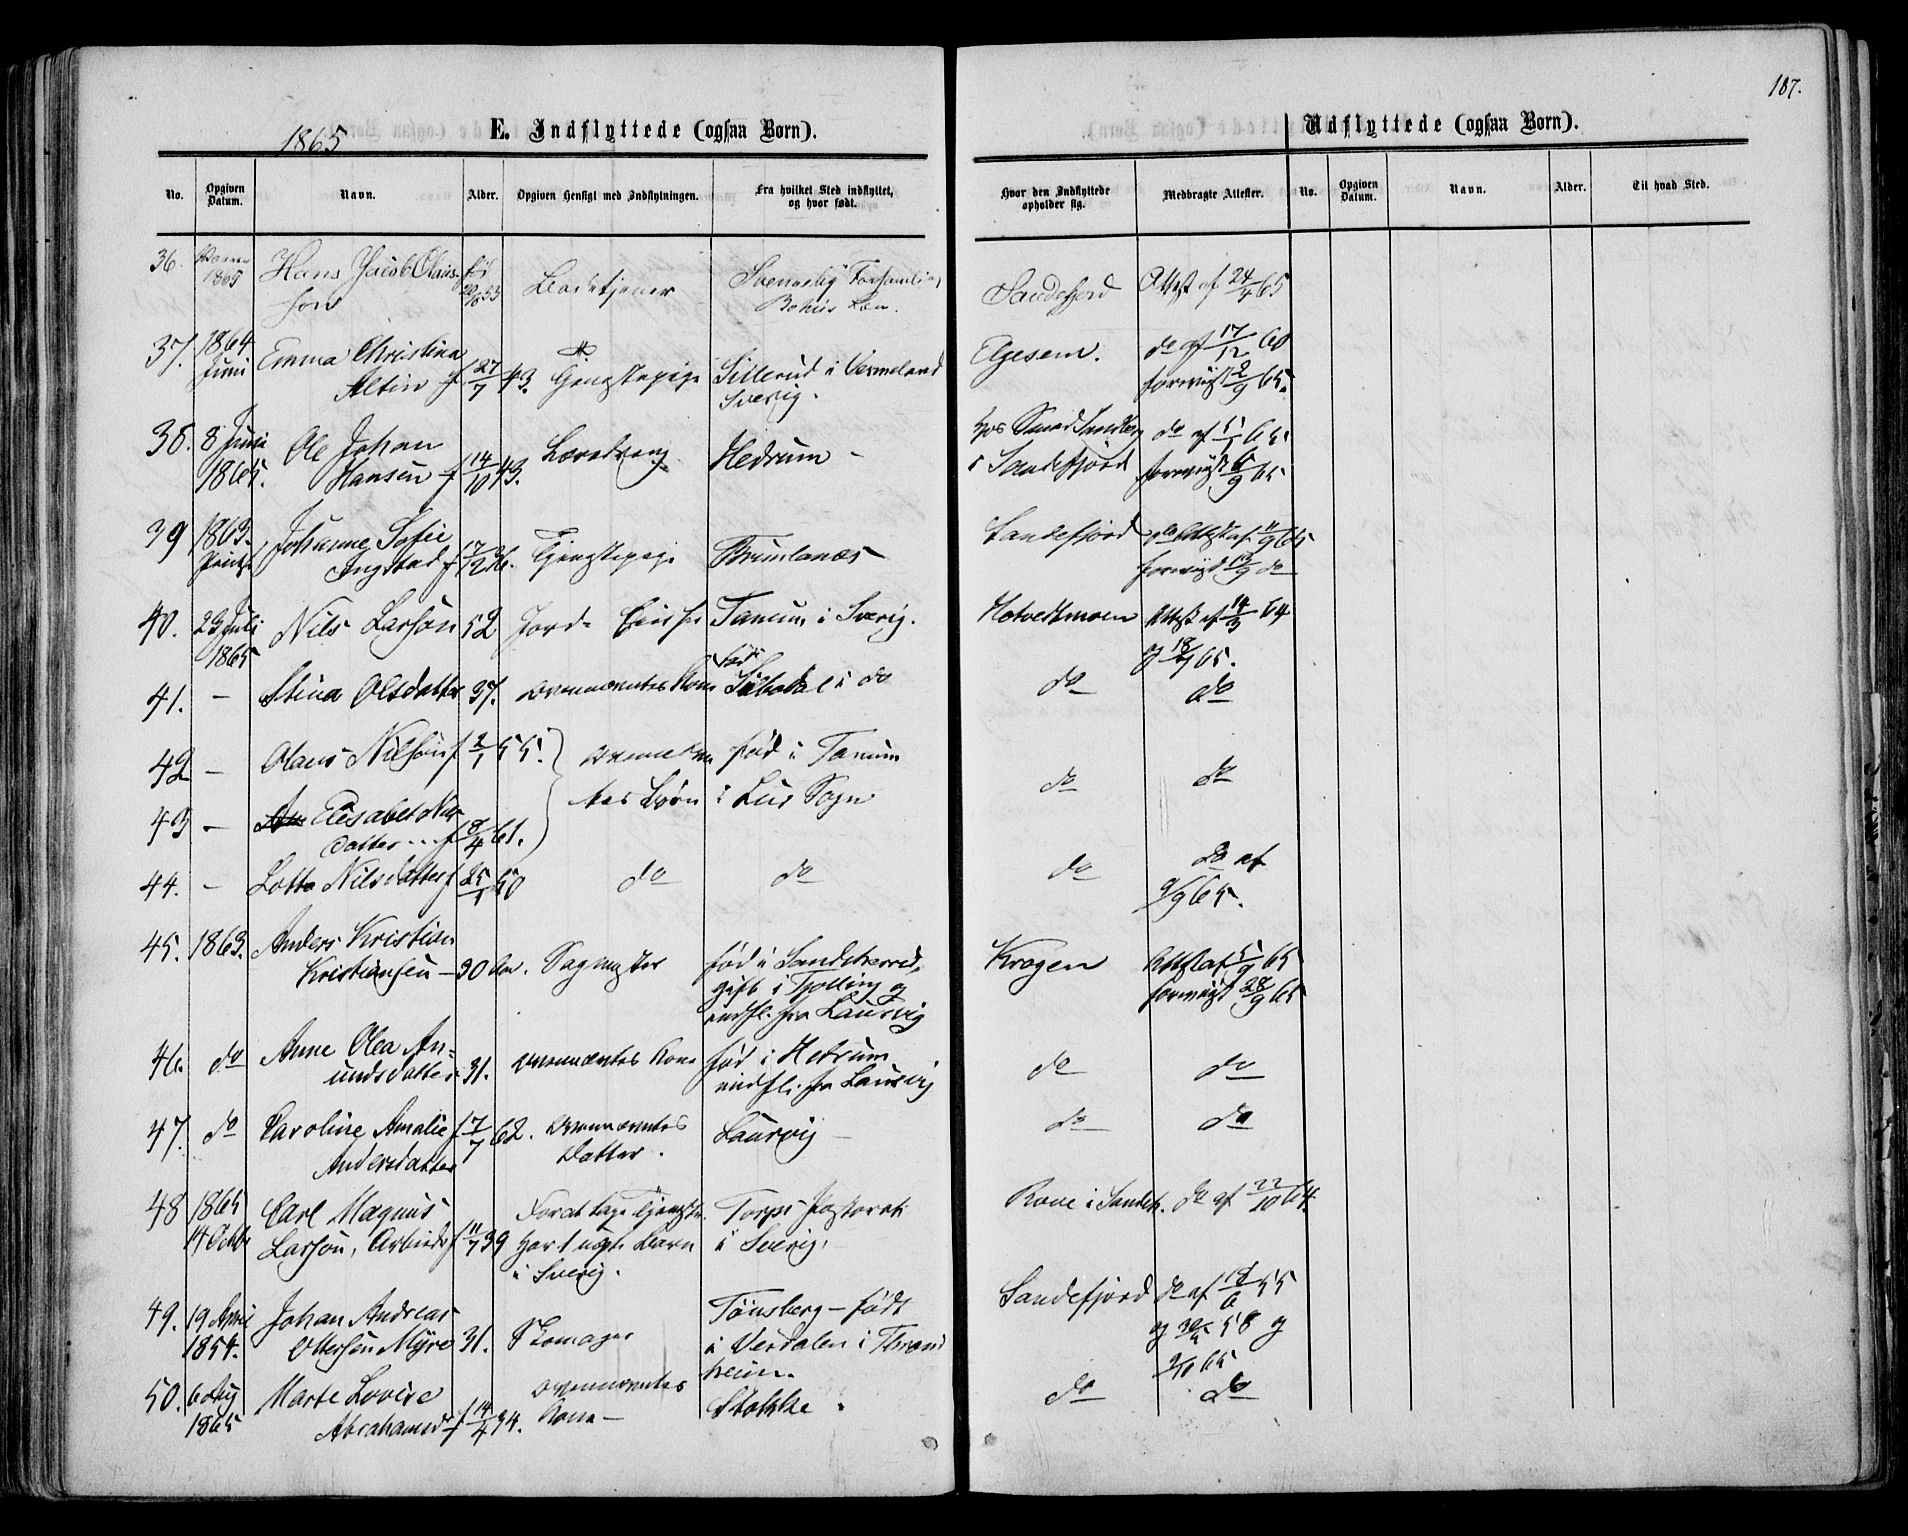 187.
1865
E. Indflyttede (ogsaa Børn).
Udflyttede (ogsaa Børn).
No. Opgiven Datum. Navn. Alder. Opgiven Hensigt med Indflytningen. Fra hvilket Sted indflyttet, og hvor født. Hvor den Indflyttede opholder sig. Medbragte Attester. No. Opgiven Datum. Navn. Alder. Til hvad Sted.
36. 1865 Hans Jacob Olaus- Sandefjord Attest af 24/4 65
søn Bohus Len.
37. 1864 Emma Christina Elgesem. do af 17/12 60
Juni Altin f 27/7 43. Tjenestepige Sillerud i Vermeland 2/9 65.
Sverig.
38. 8 Juni Ole Johan Læredreng Hedrum - Hos Smed Sandberg do af
1865. Hansen f 14/10 43. i Sandefjord 6/9 65
39 1863. Johanne Sofie Tjenestepige Brunlanæs Sandefjord Attest af 11/9 65
Ingstad f 17/12 36. do
40. 29 Juli Nils Larsøn 52 Jorde Tanum i Sverig. Hotvedtmoen Attest af 14/3 64
1865 og 18/7 65.
41. - Stina Olsdatter 37. ovennævntes Kone født Silbodal i do do do
42 - Olaus Nilsøn f 2/1 55. ovennævn født i Tanum do do
43 - Elisabet Nils tes Børn i Lur Sogn
datter f 8/4 61.
44. - Lotta Nilsdatter f 25/1 50 do do do do af
9/9 65.
45. 1863. Anders Kristian
Kristiansen - 30 Aar. Sagmester født i Sandeherred, Krogen Attest af 5/9 65
gift i Tjølling og 28/9 65
indfl. fra Laurvig
46. do Anne Olea An=
undsdatter 31. ovennævntes Kone født i Hedrum do do
indfl. fra Laurvig
47. do Caroline Amalie f 7/7 62. ovennævntes Laurvig - do do
Andersdatter Datter.
48 1865 Carl Magnus For at tage Tjeneste. Torps Pastorat Rove i Sandeh. do af 22/10 64.
14 Octbr Larsøn, Arbeids f 11/7 39 Har 1 uægte Barn i Sverig.
i Sverig.
49. 19 April Johan Andreas Tønsberg - født Sandefjord do af 18/6 55
1854. Ottersen Myre 31. Skomager i Verdalen i Thrond og 30/5 58 og
heim. 65
50. 6 Aug Marte Lovise ovennævntes Stokke. do do
1865 Abrahamsd. f 14/4 34. Kone -